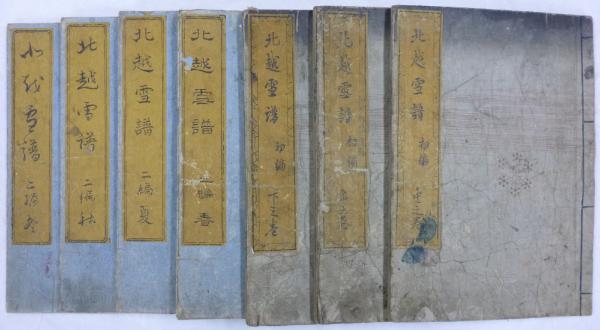 北越雪譜 初編 上之巻
北越雪譜 初編 中之巻
北越雪譜 初編 下之巻
北越雪譜 二編春
北越雪譜 二編夏
北越雪譜 二編秋
北越雪譜 二編冬